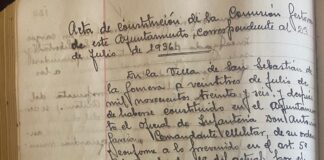 Acta de constitución de la Comisión Gestora
de este Ayuntamiento, correspondiente al 23
de Julio de 1936
En la Villa de San Sebastián de
la Gomera a veintitres de Julio de
mil novecientos treinta y seis, y después
de haberse constituido en el Ayuntamien
to el Oficial de Infantería Don Anto
Comandante Militar, de su orden
conforme a lo prevenido en el art. 5º